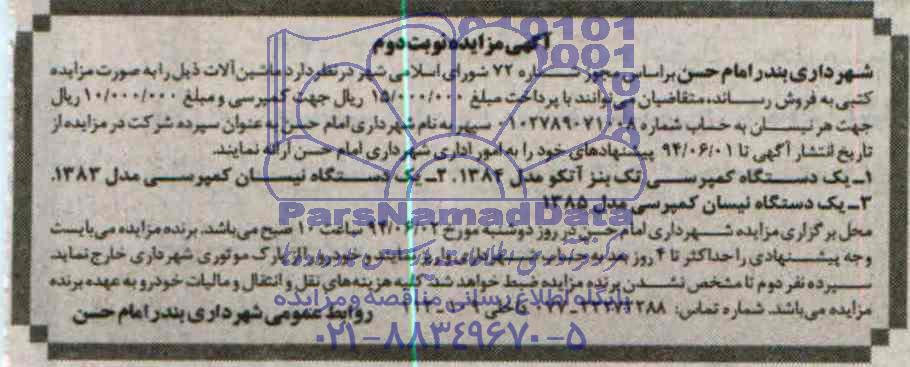 آگهی مزایده نوبت دوم
شهرداری بندر امام حسن براساس مجوز شماره ۷۲ شورای اسلامی شهر در نظر دارد ماشین‌آلات ذیل را به صورت مزایده
کتبی به فروش رساند، متقاضیان می‌توانند با پرداخت مبلغ ۱۵/۰۰۰/۰۰۰ ریال جهت کمپرسی و مبلغ ۱۰/۰۰۰/۰۰۰ ریال
جهت هر نیسان به حساب شماره سپهر به نام شهرداری امام حسن به عنوان سپرده شرکت در مزایده از
تاریخ انتشار آگهی تا ۹۴/۰۶/۰۱ پیشنهادهای خود را به امور اداری شهرداری امام حسن ارائه نمایند.
۱ـ یک دستگاه کمپرسی تک بنز آتکو مدل ۱۳۸۴. ۲ـ یک دستگاه نیسان کمپرسی مدل ۱۳۸۳.
۳ـ یک دستگاه نیسان کمپرسی مدل ۱۳۸۵
محل برگزاری مزایده شهرداری امام حسن در روز دوشنبه مورخ ۹۴/۰۶/۰۲ ساعت ۱۰ صبح می‌باشد. برنده مزایده می‌بایست
وجه پیشنهادی را حداکثر تا ۴ روز بعد به حساب شهرداری واریز نماید و خودرو را از پارک موتوری شهرداری خارج نماید.
سپرده نفر دوم تا مشخص نشدن برنده مزایده ضبط خواهد شد. کلیه هزینه‌های نقل و انتقال و مالیات خودرو به عهده برنده
مزایده می‌باشد. شماره تماس: داخلی
روابط عمومی شهرداری بندر امام حسن
ParsNamadData
پایگاه اطلاع رسانی مناقصه و مزایده
۰۲۱-۸۸۳۴۹۶۷۰-۵